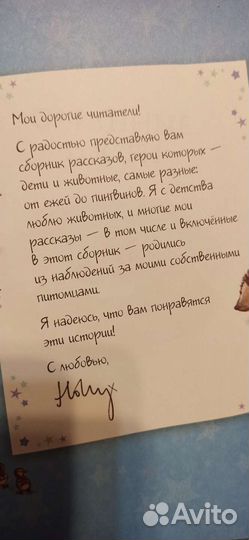 Мои дорогие читатели!
С радостью представляю вам
сборник рассказов, герои которых —
дети и животные, самые разные:
от ежей до пингвинов. Я с детства
люблю животных, и многие мои
рассказы — в том числе и включённые
в этот сборник — родились
из наблюдений за моими собственными
питомцами.
Я надеюсь, что вам понравятся
эти истории!
С любовью,
Holly x
Avito